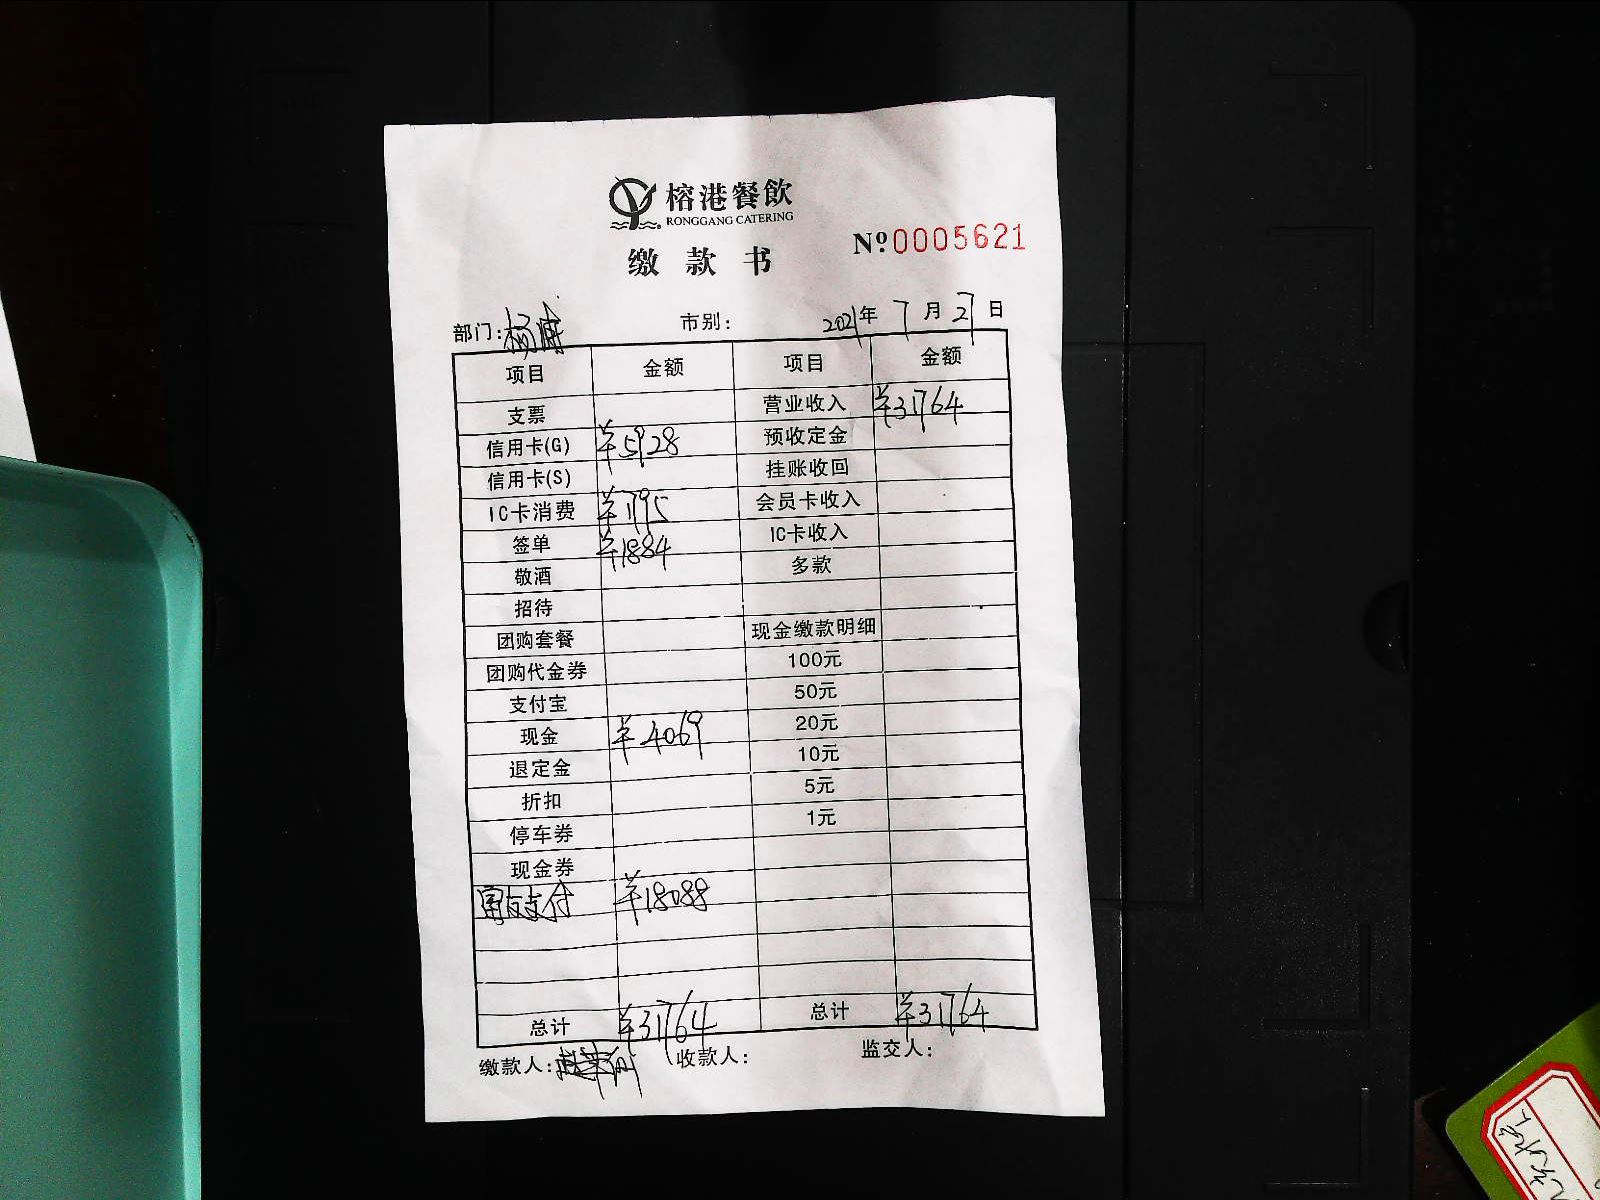 榕港餐飲
RONGGANG CATERING
缴款书
Nº 0005621
部门: 杨浦 市别: 2021年 7月27日
项目 金额 项目 金额
支票 营业收入 ¥31764
信用卡(G) ¥5928 预收定金
信用卡(S) 挂账收回
IC卡消费 ¥1795 会员卡收入
签单 ¥1884 IC卡收入
敬酒 多款
招待
团购套餐 现金缴款明细
团购代金券 100元
支付宝 50元
现金 ¥4069 20元
退定金 10元
折扣 5元
停车券 1元
现金券
富友支付 ¥18088
总计 ¥31764 总计 ¥31764
缴款人: 收款人: 监交人: